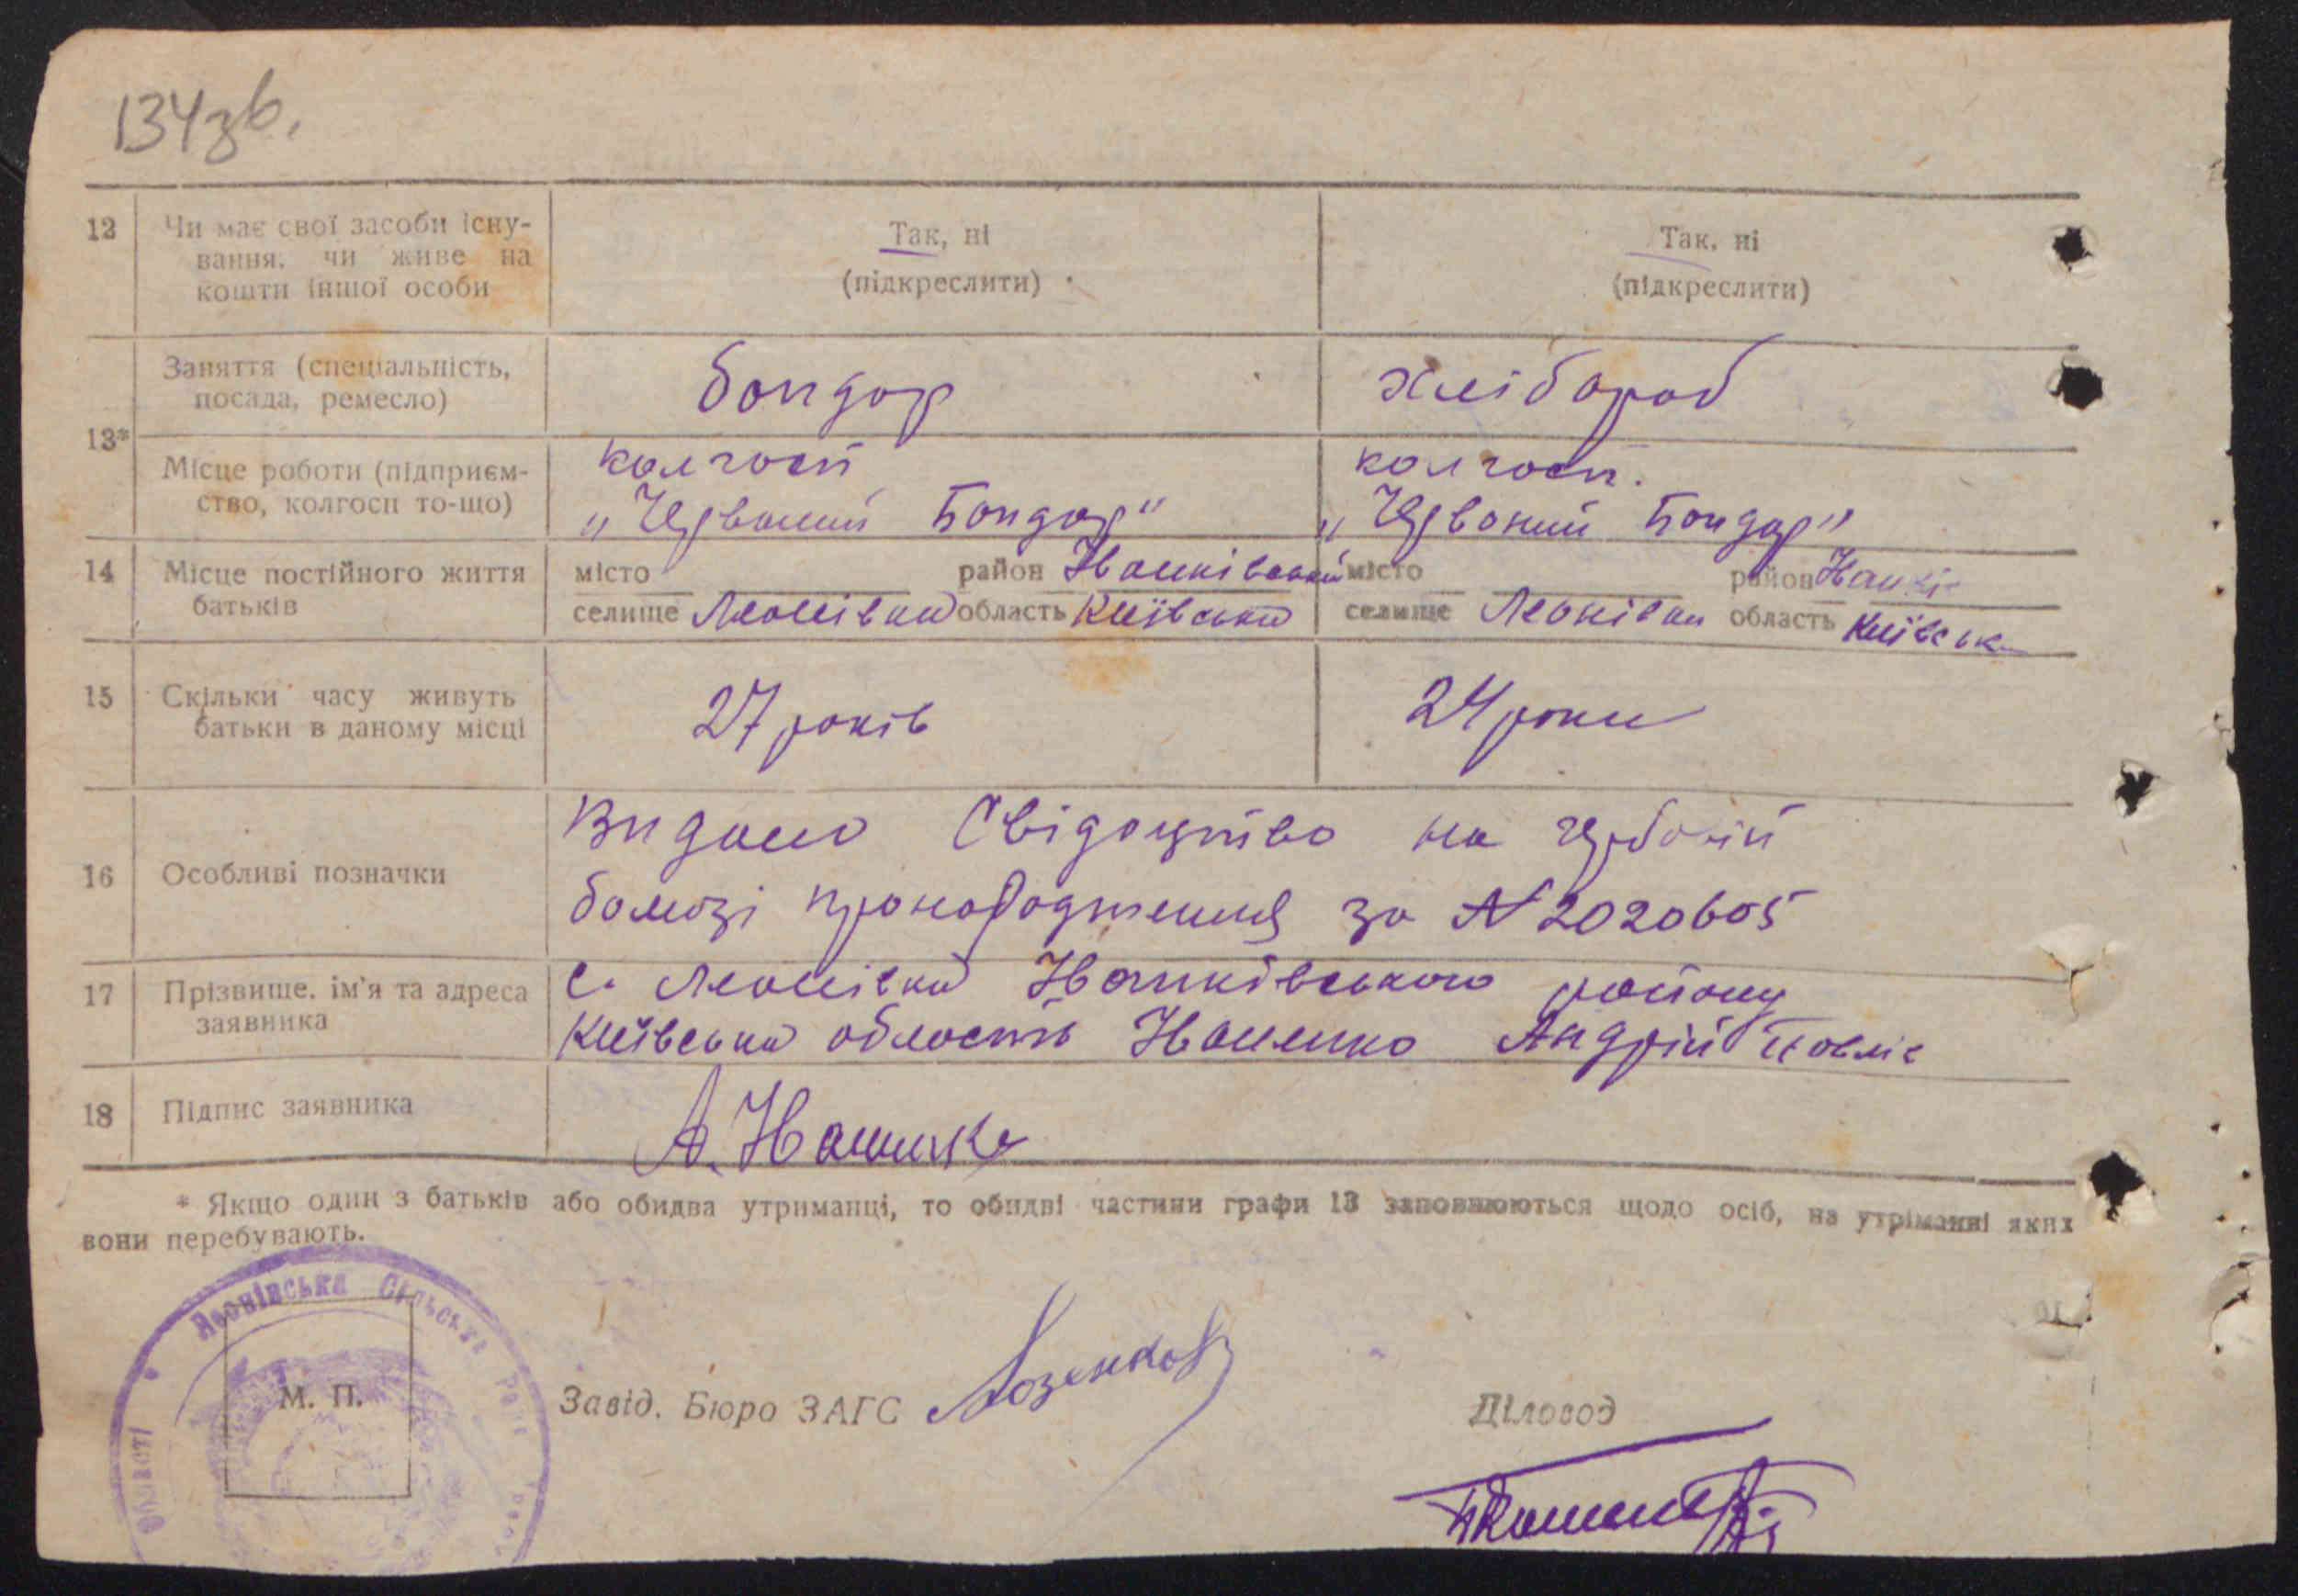 134зв.
12 Чи має свої засоби існу-
вання, чи живе на
кошти іншої особи
Так, ні
(підкреслити)
Так, ні
(підкреслити)
13*
Заняття (спеціальність,
посада, ремесло)
бондар
хлібороб
Місце роботи (підприєм-
ство, колгосп то-що)
колгосп
„Червоний Бондар"
колгосп.
„Червоний Бондар"
14 Місце постійного життя
батьків
місто район Іванківський
селище Леонівка область Київська
місто район Іванків
селище Леонівка область Київськ
15 Скільки часу живуть
батьки в даному місці
27 років
24 роки
16 Особливі позначки
Видано Свідоцтво на гербовій
бомозі про народження за N 2020605
17 Прізвище, ім'я та адреса
заявника
с. Леонівка Іванківського району
Київська область Іваненко Андрій Павлів
18 Підпис заявника
А. Іваненко
* Якщо один з батьків або обидва утриманці, то обидві частини графи 13 заповнюються щодо осіб, на утріманні яких
вони перебувають.
Леонівська Сільська Рада
області
М. П.
Завід. Бюро ЗАГС
Діловод